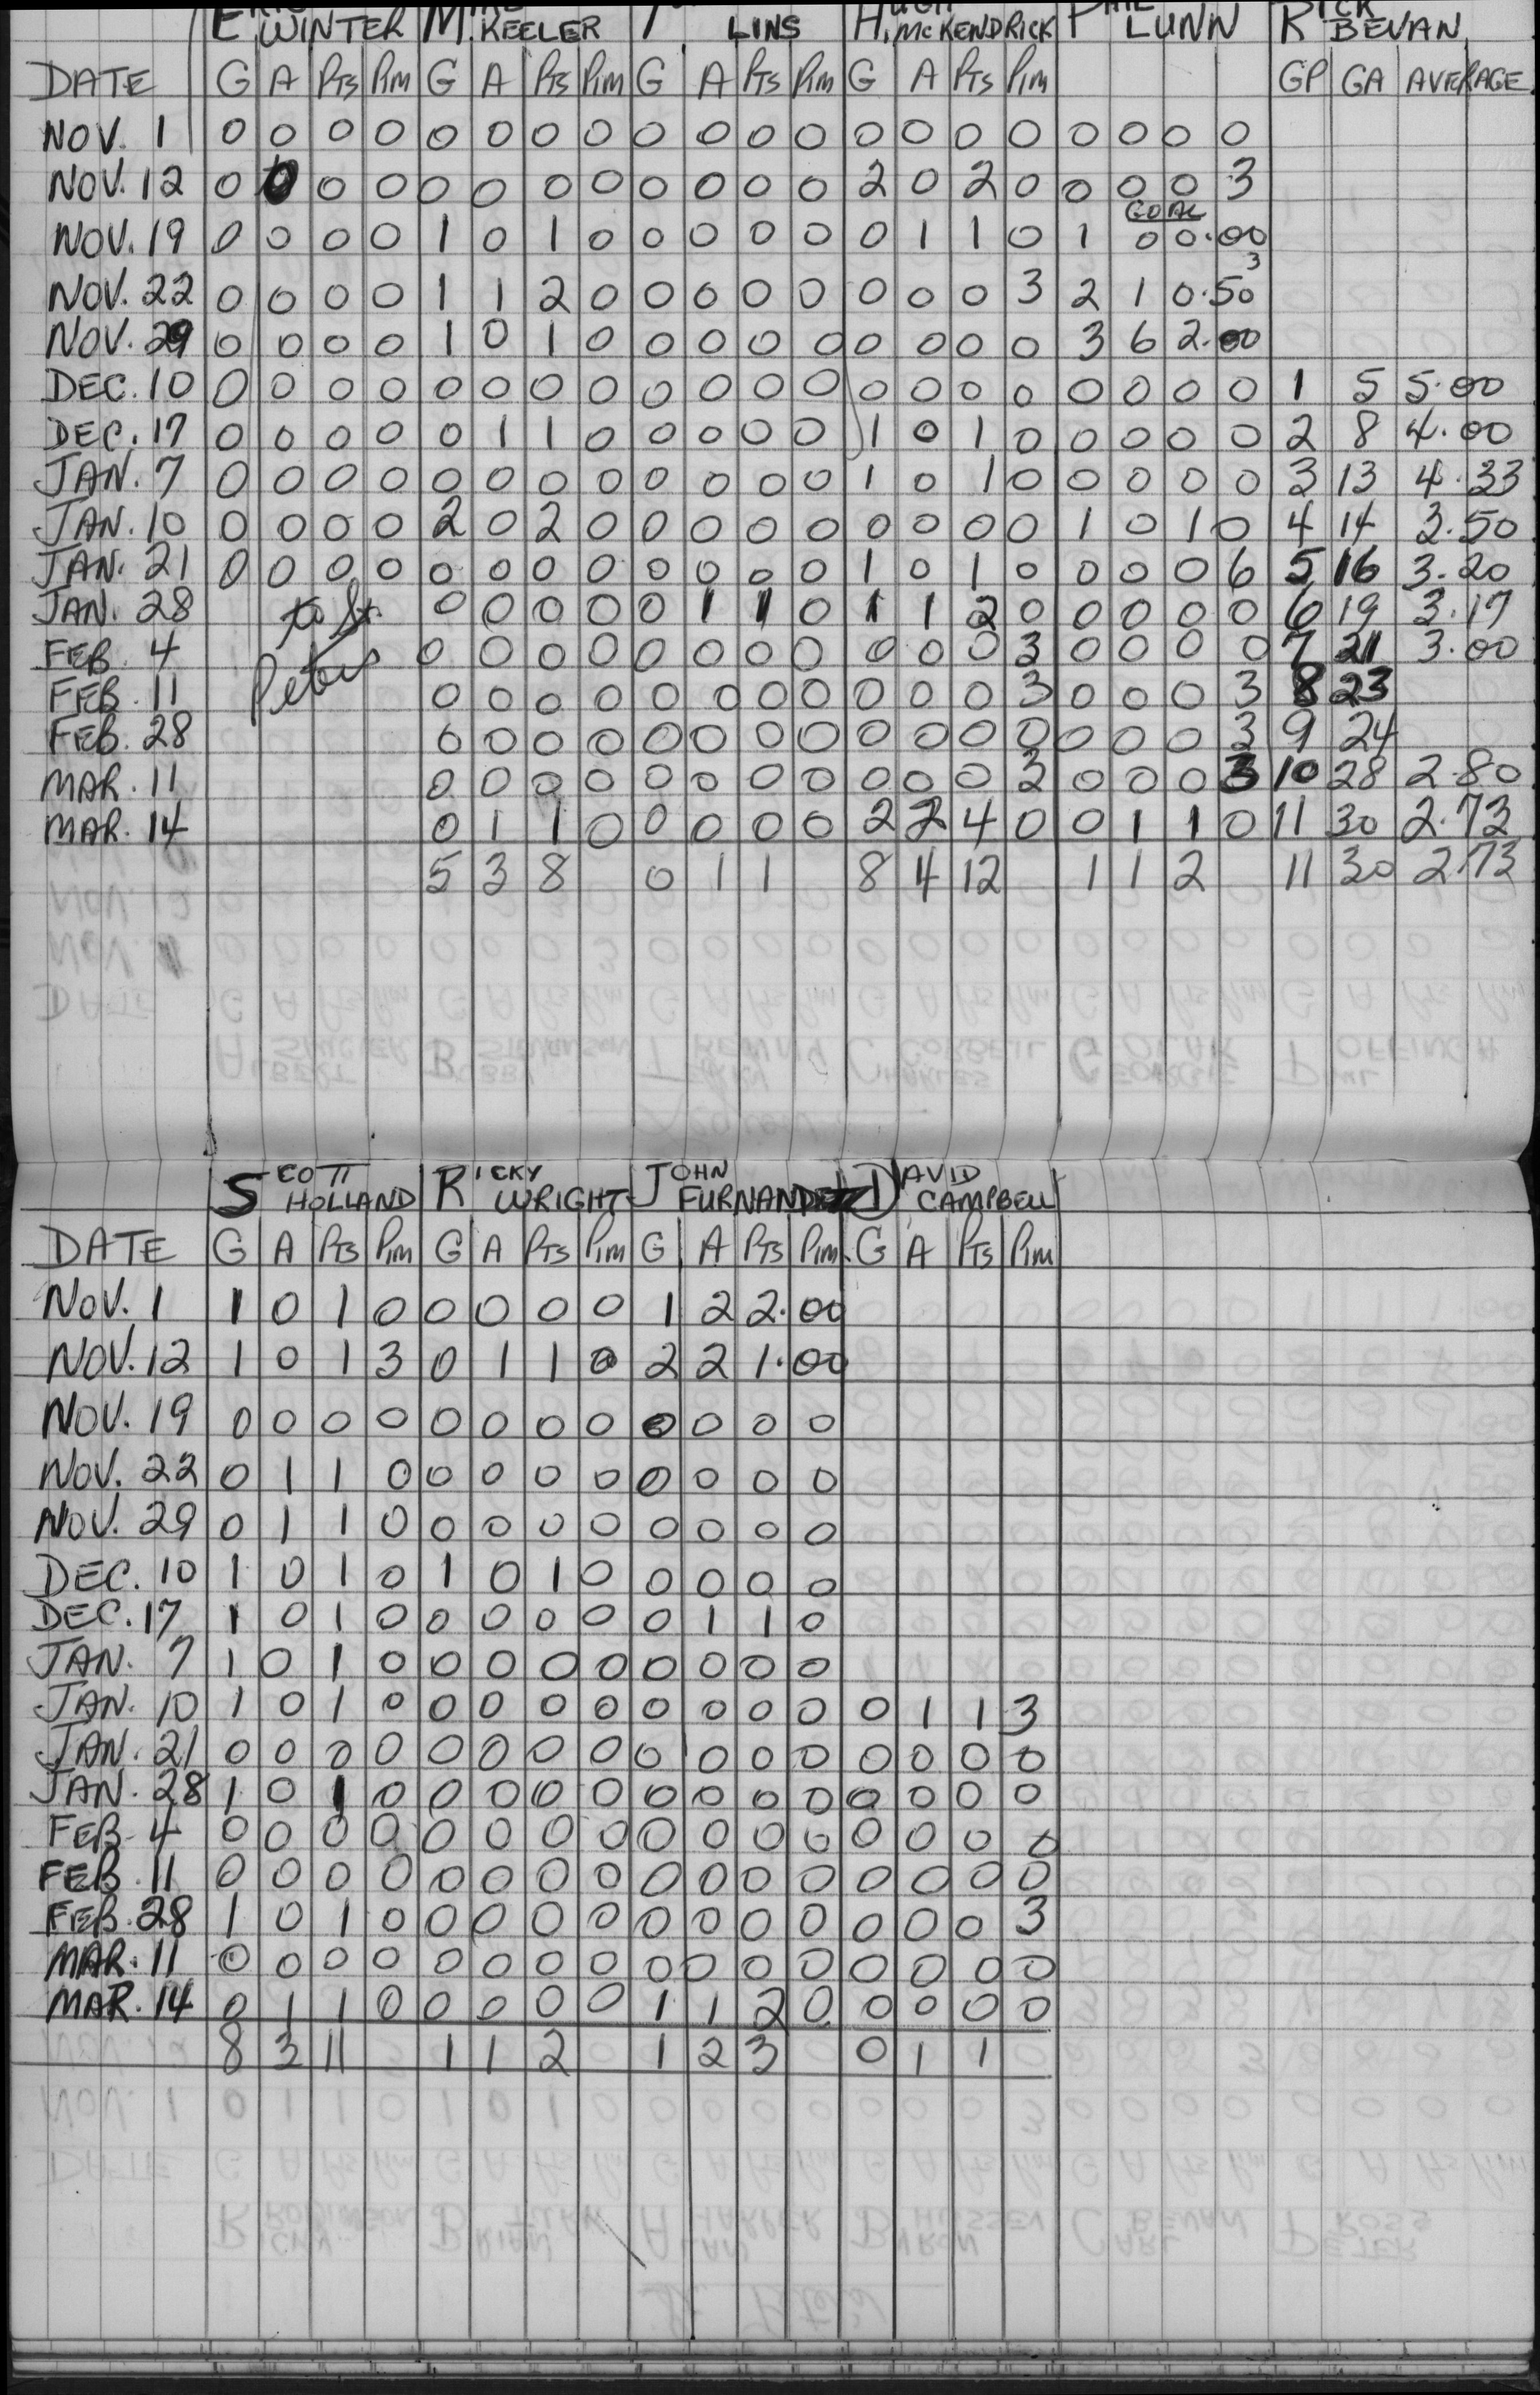 WINTER M. KEELER LINS H. McKENDRICK P LUNN RICK BEVAN
DATE G A Pts Pim G A Pts Pim G A Pts Pim G A Pts Pim GP GA AVERAGE
NOV. 1 0 0 0 0 0 0 0 0 0 0 0 0 0 0 0 0 0 0 0 0
NOV. 12 0 0 0 0 0 0 0 0 0 0 0 0 2 0 2 0 0 0 0 3
GOAL
NOV. 19 0 0 0 0 1 0 1 0 0 0 0 0 0 1 1 0 1 0 0.00
3
NOV. 22 0 0 0 0 1 1 2 0 0 0 0 0 0 0 0 3 2 1 0.50
NOV. 29 0 0 0 0 1 0 1 0 0 0 0 0 0 0 0 0 3 6 2.00
DEC. 10 0 0 0 0 0 0 0 0 0 0 0 0 0 0 0 0 0 0 0 0 1 5 5.00
DEC. 17 0 0 0 0 0 1 1 0 0 0 0 0 1 0 1 0 0 0 0 0 2 8 4.00
JAN. 7 0 0 0 0 0 0 0 0 0 0 0 0 1 0 1 0 0 0 0 0 3 13 4.33
JAN. 10 0 0 0 0 2 0 2 0 0 0 0 0 0 0 0 0 1 0 1 0 4 14 3.50
JAN. 21 0 0 0 0 0 0 0 0 0 0 0 0 1 0 1 0 0 0 0 6 5 16 3.20
JAN. 28 to St. 0 0 0 0 0 1 1 0 1 1 2 0 0 0 0 0 6 19 3.17
FEB. 4 Peters 0 0 0 0 0 0 0 0 0 0 0 3 0 0 0 0 7 21 3.00
FEB. 11 0 0 0 0 0 0 0 0 0 0 0 3 0 0 0 3 8 23
FEB. 28 0 0 0 0 0 0 0 0 0 0 0 0 0 0 0 3 9 24
MAR. 11 0 0 0 0 0 0 0 0 0 0 0 3 0 0 0 3 10 28 2.80
MAR. 14 0 1 1 0 0 0 0 0 2 2 4 0 0 1 1 0 11 30 2.73
5 3 8 0 1 1 8 4 12 1 1 2 11 30 2.73
SCOTT HOLLAND RICKY WRIGHT JOHN FURNANDEZ DAVID CAMPBELL
DATE G A Pts Pim G A Pts Pim G A Pts Pim G A Pts Pim
NOV. 1 1 0 1 0 0 0 0 0 1 2 2.00
NOV. 12 1 0 1 3 0 1 1 0 2 2 1.00
NOV. 19 0 0 0 0 0 0 0 0 0 0 0 0
NOV. 22 0 1 1 0 0 0 0 0 0 0 0 0
NOV. 29 0 1 1 0 0 0 0 0 0 0 0 0
DEC. 10 1 0 1 0 1 0 1 0 0 0 0 0
DEC. 17 1 0 1 0 0 0 0 0 0 1 1 0
JAN. 7 1 0 1 0 0 0 0 0 0 0 0 0
JAN. 10 1 0 1 0 0 0 0 0 0 0 0 0 0 1 1 3
JAN. 21 0 0 0 0 0 0 0 0 0 0 0 0 0 0 0 0
JAN. 28 1 0 1 0 0 0 0 0 0 0 0 0 0 0 0 0
FEB. 4 0 0 0 0 0 0 0 0 0 0 0 0 0 0 0 0
FEB. 11 0 0 0 0 0 0 0 0 0 0 0 0 0 0 0 0
FEB. 28 1 0 1 0 0 0 0 0 0 0 0 0 0 0 0 3
MAR. 11 0 0 0 0 0 0 0 0 0 0 0 0 0 0 0 0
MAR. 14 0 1 1 0 0 0 0 0 1 1 2 0 0 0 0 0
8 3 11 1 1 2 1 2 3 0 1 1